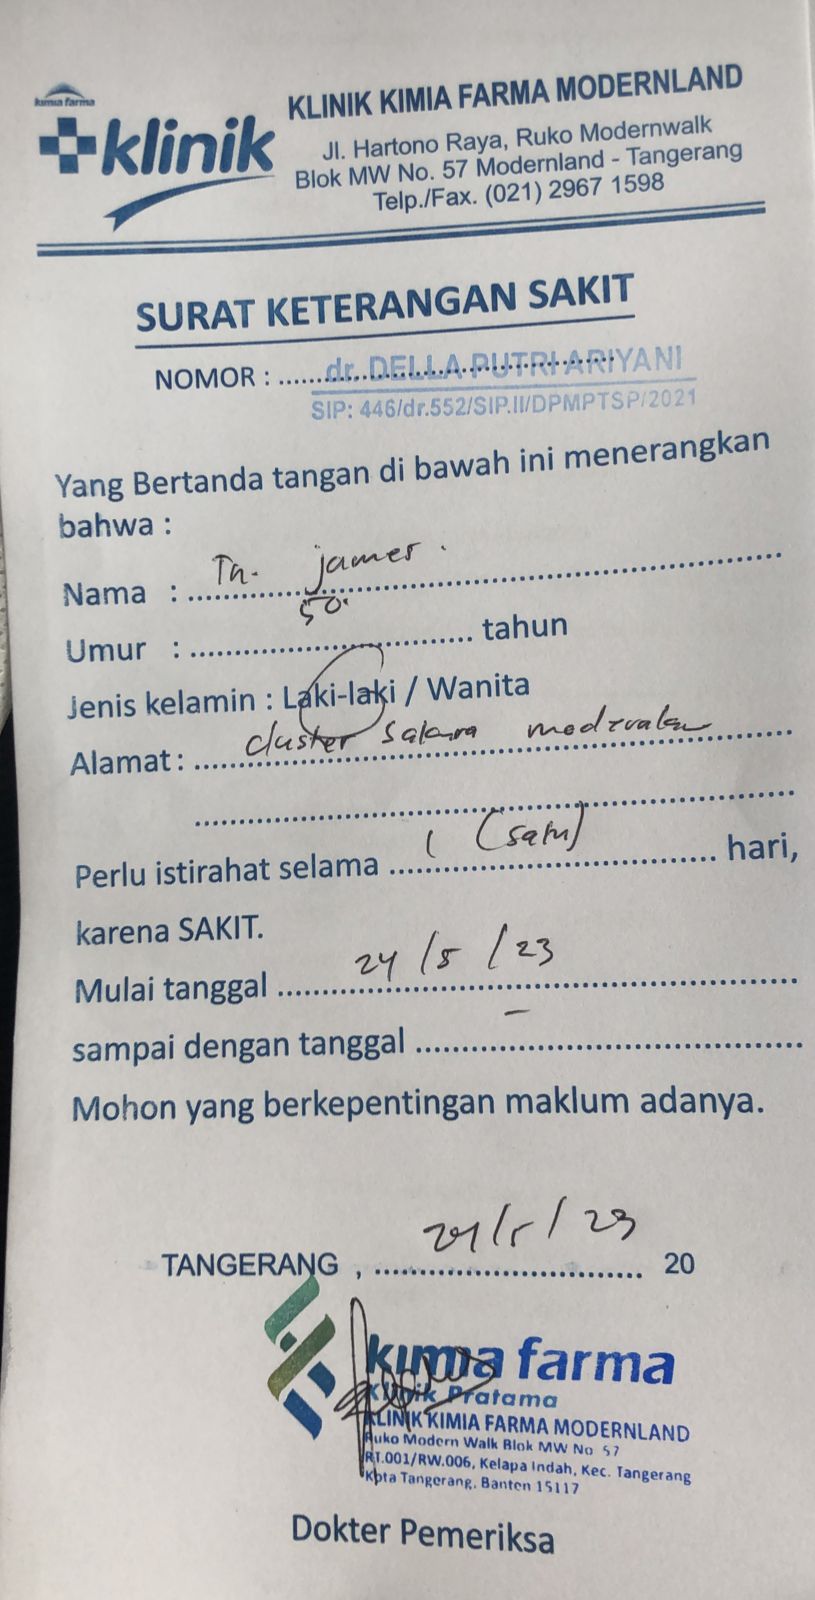 kimia farma
klinik
KLINIK KIMIA FARMA MODERNLAND
Jl. Hartono Raya, Ruko Modernwalk
Blok MW No. 57 Modernland - Tangerang
Telp./Fax. (021) 2967 1598
SURAT KETERANGAN SAKIT
NOMOR : dr. DELLA PUTRI ARIYANI
SIP: 446/dr.552/SIP.II/DPMPTSP/2021
Yang Bertanda tangan di bawah ini menerangkan
bahwa :
Nama : Tn. james.
Umur : 50. tahun
Jenis kelamin : Laki-laki / Wanita
Alamat : cluster
Perlu istirahat selama 1 (satu) hari,
karena SAKIT.
Mulai tanggal 24/5/23
sampai dengan tanggal -
Mohon yang berkepentingan maklum adanya.
TANGERANG , 24/5/23 20
kimia farma
Klinik Pratama
KLINIK KIMIA FARMA MODERNLAND
Ruko Modern Walk Blok MW No 57
RT.001/RW.006, Kelapa Indah, Kec. Tangerang
Kota Tangerang, Banten 15117
Dokter Pemeriksa